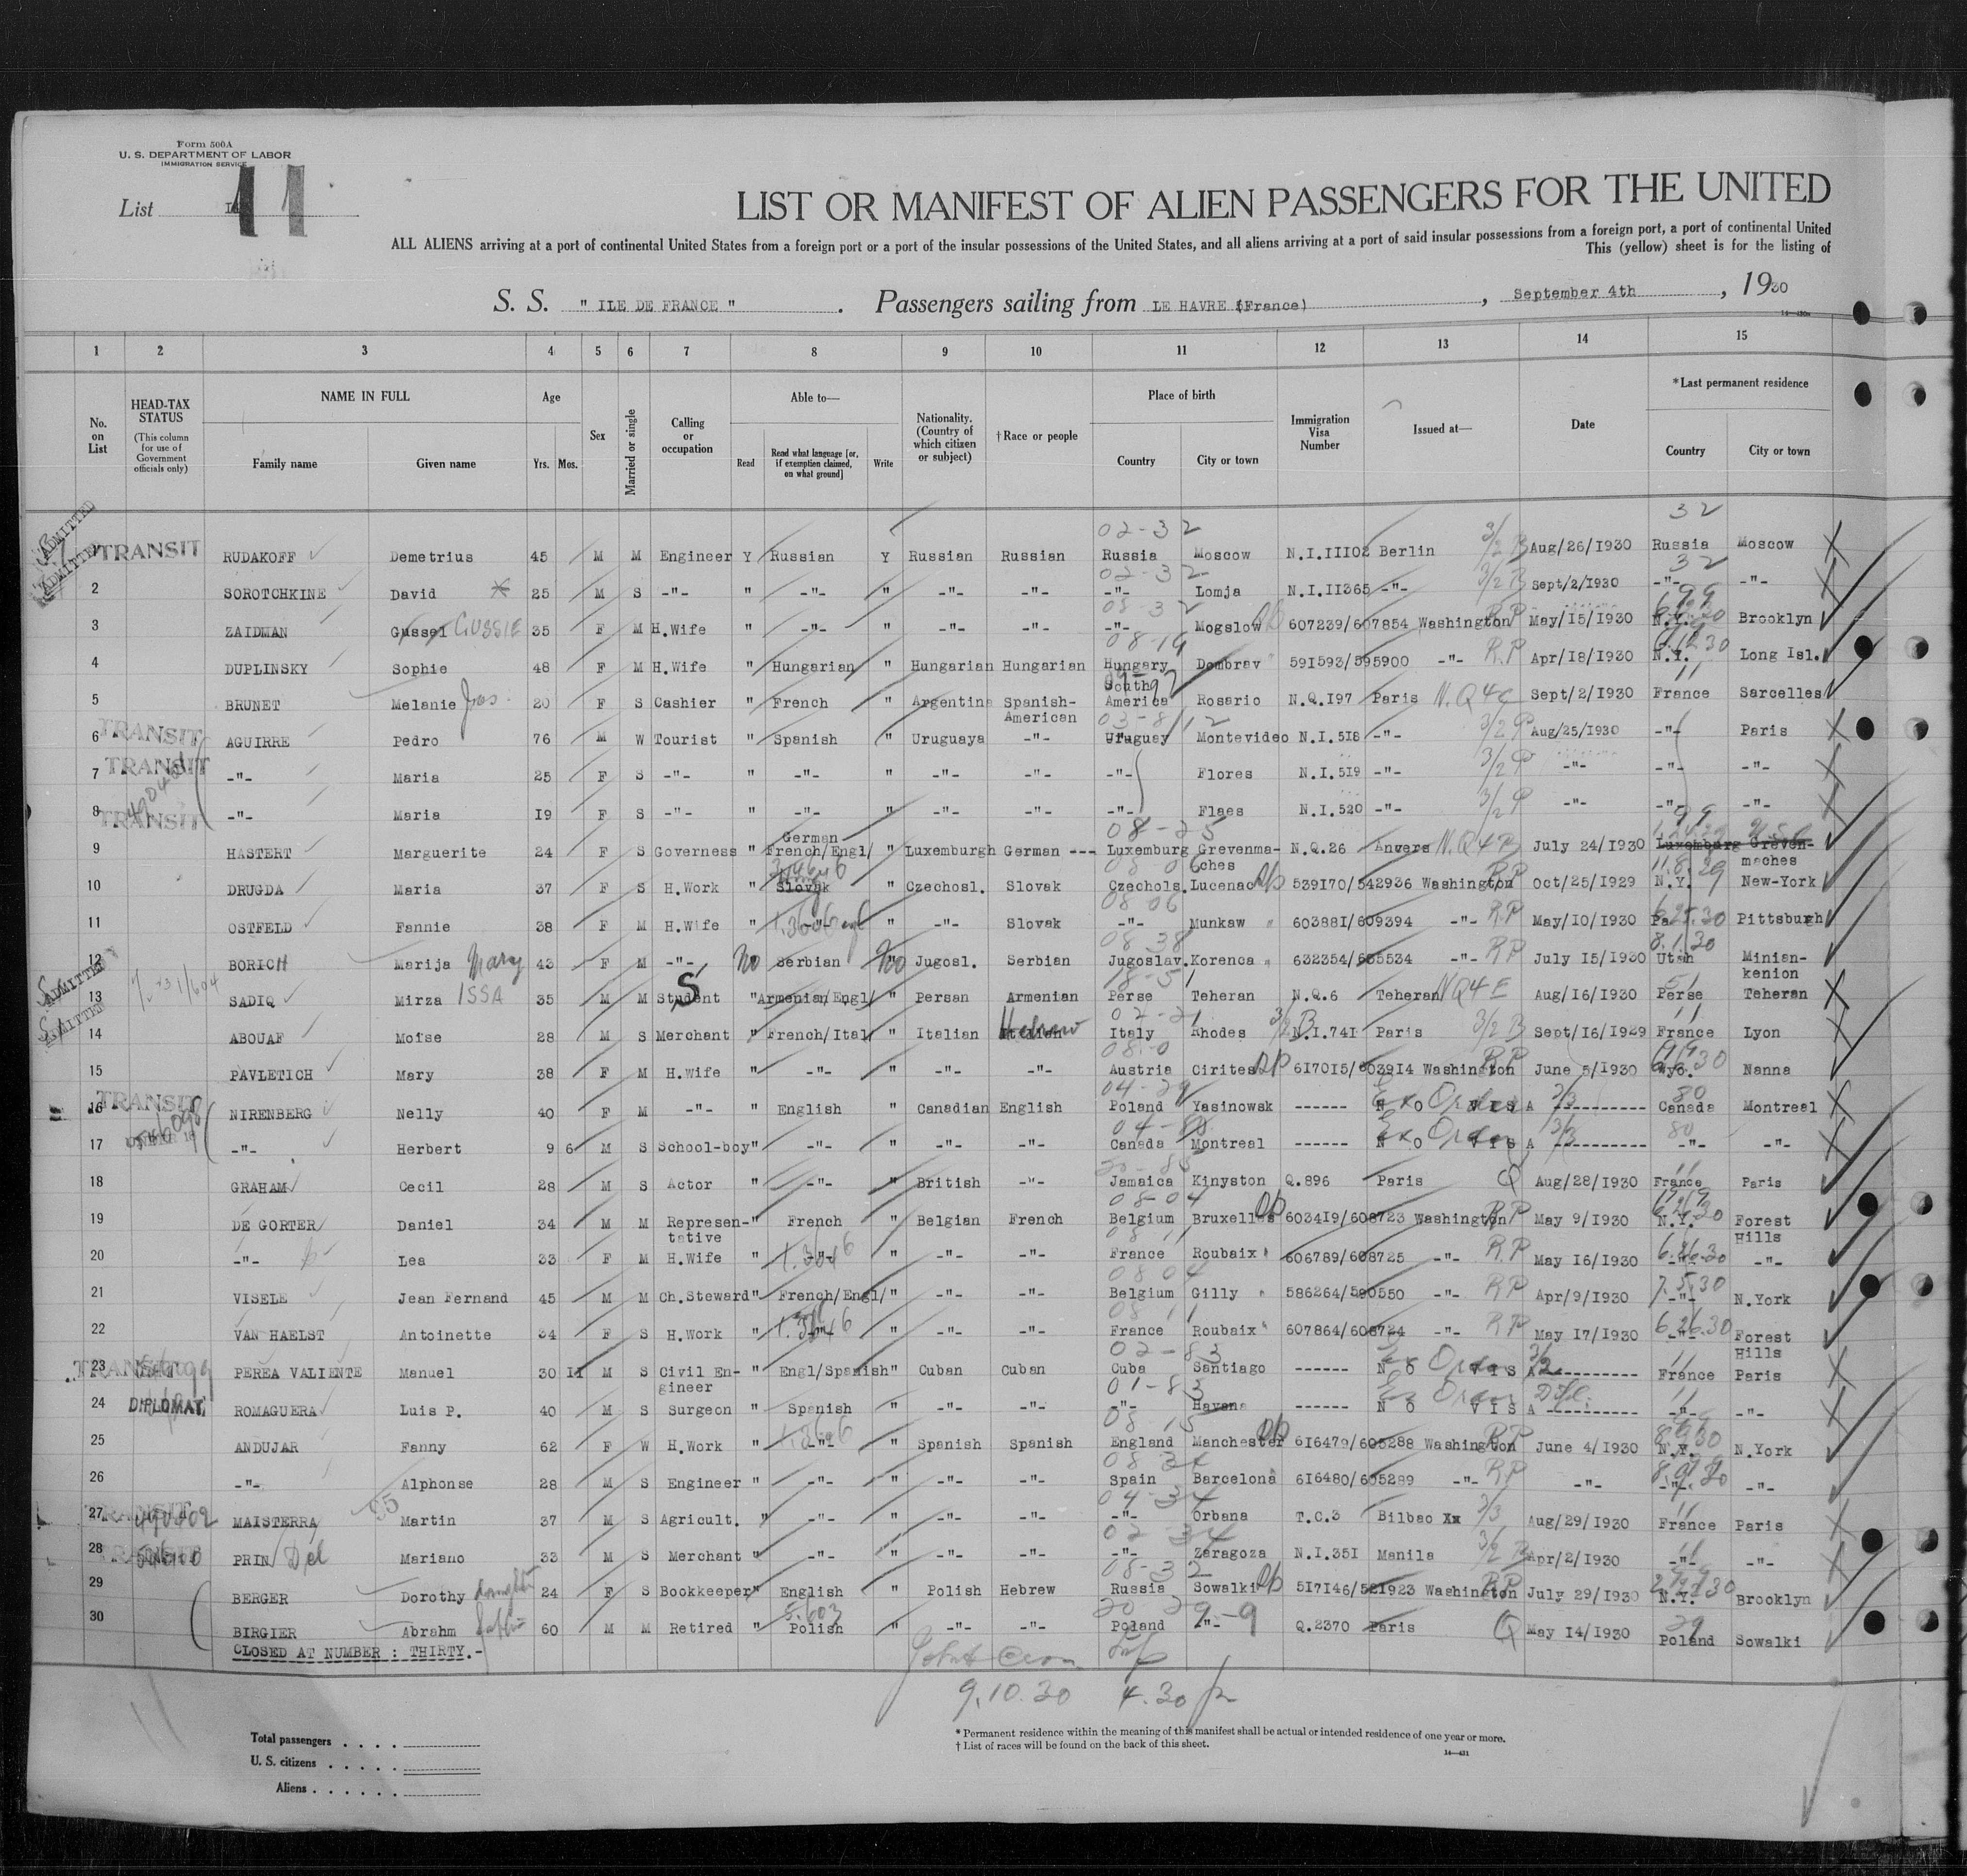 Form 500A
U. S. DEPARTMENT OF LABOR
IMMIGRATION SERVICE
List 11
LIST OR MANIFEST OF ALIEN PASSENGERS FOR THE UNITED
ALL ALIENS arriving at a port of continental United States from a foreign port or a port of the insular possessions of the United States, and all aliens arriving at a port of said insular possessions from a foreign port, a port of continental United
This (yellow) sheet is for the listing of
S. S. " ILE DE FRANCE " . Passengers sailing from LE HAVRE (France) , September 4th , 1930
1 2 3 4 5 6 7 8 9 10 11 12 13 14 15
No. on List
HEAD-TAX STATUS
(This column for use of Government officials only)
NAME IN FULL
Family name Given name
Age
Yrs. Mos.
Sex
Married or single
Calling or occupation
Able to—
Read Read what language [or, if exemption claimed, on what ground] Write
Nationality. (Country of which citizen or subject)
† Race or people
Place of birth
Country City or town
Immigration Visa Number
Issued at—
Date
* Last permanent residence
Country City or town
TRANSIT RUDAKOFF Demetrius 45 M M Engineer Y Russian Y Russian Russian Russia Moscow N.I.III02 Berlin Aug/26/1930 Russia Moscow
2 SOROTCHKINE David 25 M S -"- " -"- " -"- -"- -"- Lomja N.I.II365 -"- Sept/2/1930 -"- -"-
3 ZAIDMAN Gussel GUSSIE 35 F M H.Wife " -"- " -"- -"- -"- Mogslow 607239/607854 Washington RP May/15/1930 N.Y. Brooklyn
4 DUPLINSKY Sophie 48 F M H.Wife " Hungarian " Hungarian Hungarian Hungary Dombrav 591593/595900 -"- R.P Apr/18/1930 N.Y. Long Isl.
5 BRUNET Melanie 20 F S Cashier " French " Argentina Spanish-American South America Rosario N.Q.I97 Paris N.Q4c Sept/2/1930 France Sarcelles
TRANSIT 6 AGUIRRE Pedro 76 M W Tourist " Spanish " Uruguaya -"- Uruguay Montevideo N.I.518 -"- Aug/25/1930 -"- Paris
TRANSIT 7 -"- Maria 25 F S -"- " -"- " -"- -"- -"- Flores N.I.519 -"- -"- -"- -"-
TRANSIT 8 -"- Maria I9 F S -"- " -"- " -"- -"- -"- Flaes N.I.520 -"- -"- -"- -"-
9 HASTERT Marguerite 24 F S Governess " German French/Engl/ " Luxemburgh German --- Luxemburg Grevenmaches N.Q.26 Anvers July 24/1930 Luxemburg Grevenmaches
10 DRUGDA Maria 37 F S H.Work " Slovak " Czechosl. Slovak Czechols. Lucenac 539I70/542936 Washington RP Oct/25/1929 N.Y. New-York
11 OSTFELD Fannie 38 F M H.Wife " -"- " -"- Slovak -"- Munkaw 603881/609394 -"- R.P May/10/1930 Pa. Pittsburgh
12 BORICH Marija Mary 43 F M -"- No Serbian No Jugosl. Serbian Jugoslav. Korenca 632354/635534 -"- RP July 15/1930 Utah Miniankenion
ADMITTED 13 SADIQ Mirza ISSA 35 M M Student " Armenian/Engl/ " Persan Armenian Perse Teheran N.Q.6 Teheran NQ4E Aug/16/1930 Perse Teheran
14 ABOUAF Moïse 28 M S Merchant " French/Ital/ " Italian Hebrew Italy Rhodes N.I.74I Paris Sept/16/1929 France Lyon
15 PAVLETICH Mary 38 F M H.Wife " -"- " -"- -"- Austria Cirites 6I70I5/6039I4 Washington RP June 5/1930 Wyo. Nanna
TRANSIT 16 NIRENBERG Nelly 40 F M -"- " English " Canadian English Poland Yasinowsk ------ N O V I S A ---------- Canada Montreal
17 -"- Herbert 9 6 M S School-boy " -"- " -"- -"- Canada Montreal ------ N O V I S A ---------- -"- -"-
18 GRAHAM Cecil 28 M S Actor " -"- " British -"- Jamaica Kinyston Q.896 Paris Q Aug/28/1930 France Paris
19 DE GORTER Daniel 34 M M Representative " French " Belgian French Belgium Bruxelles 6034I9/608723 Washington RP May 9/1930 N.Y. Forest Hills
20 -"- Lea 33 F M H.Wife " -"- " -"- -"- France Roubaix 606789/608725 -"- R.P May I6/1930 -"- -"-
21 VISELE Jean Fernand 45 M M Ch.Steward " French/Engl/ " -"- -"- Belgium Gilly 586264/590550 -"- RP Apr/9/1930 -"- N.York
22 VAN HAELST Antoinette 34 F S H.Work " -"- " -"- -"- France Roubaix 607864/608724 -"- RP May I7/1930 -"- Forest Hills
TRANSIT 23 PEREA VALIENTE Manuel 30 II M S Civil Engineer " Engl/Spanish " Cuban Cuban Cuba Santiago ------ N O V I S A ---------- France Paris
24 DIPLOMAT. ROMAGUERA Luis P. 40 M S Surgeon " Spanish " -"- -"- -"- Havana ------ N O V I S A ---------- -"- -"-
25 ANDUJAR Fanny 62 F W H.Work " -"- " Spanish Spanish England Manchester 616479/605288 Washington RP June 4/1930 N.Y. N.York
26 -"- Alphonse 28 M S Engineer " -"- " -"- -"- Spain Barcelona 616480/605289 -"- RP -"- -"- -"-
TRANSIT 27 MAISTERRA Martin 37 M S Agricult. " -"- " -"- -"- -"- Orbana T.C.3 Bilbao Xx Aug/29/1930 France Paris
TRANSIT 28 PRIN Del Mariano 33 M S Merchant " -"- " -"- -"- -"- Zaragoza N.I.35I Manila Apr/2/1930 -"- -"-
29 BERGER Dorothy daughter 24 F S Bookkeeper " English " Polish Hebrew Russia Sowalki 5I7I46/52I923 Washington RP July 29/1930 N.Y. Brooklyn
30 BIRGIER Abrahm 60 M M Retired " Polish " -"- -"- Poland -"- Q.2370 Paris Q May I4/1930 Poland Sowalki
CLOSED AT NUMBER : THIRTY.-
9.10.30 4.30 p
Total passengers . . . .
U. S. citizens . . . . .
Aliens . . . . . .
* Permanent residence within the meaning of this manifest shall be actual or intended residence of one year or more.
† List of races will be found on the back of this sheet.
14—431